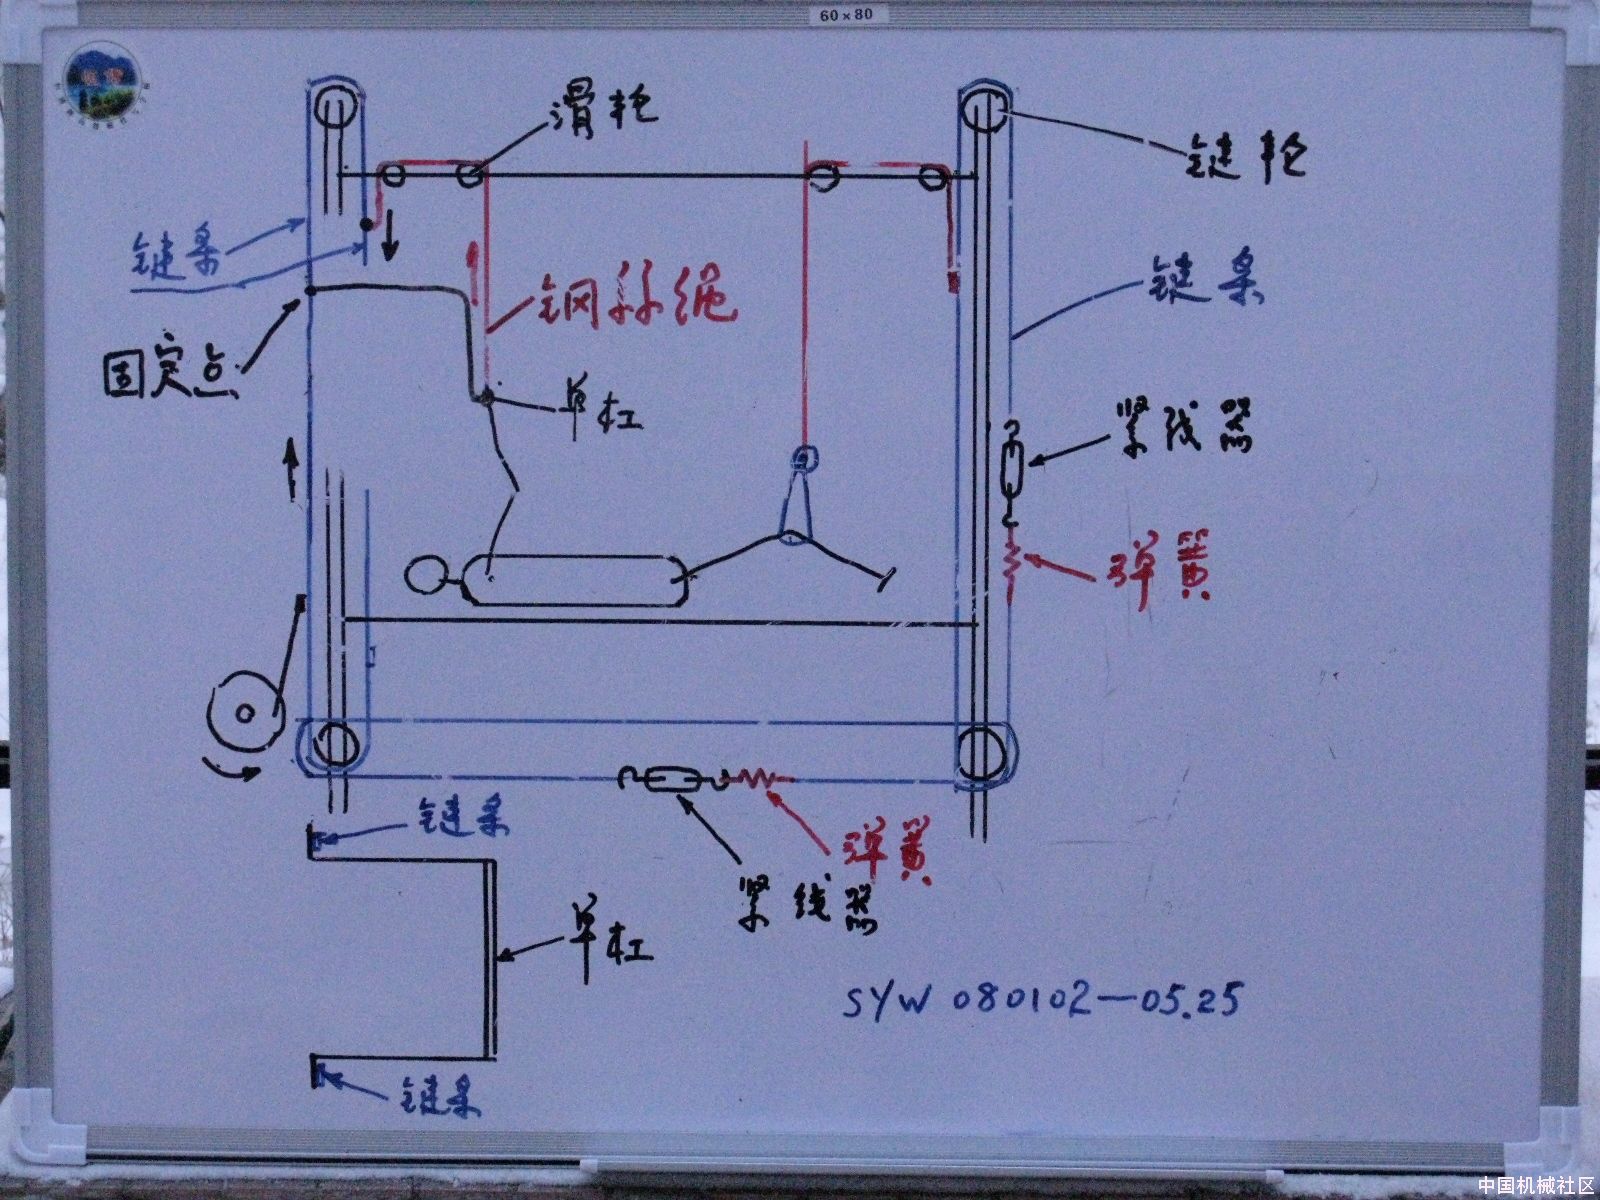 60×80
滑轮
键轮
键条
键条
钢丝绳
固定点
单杠
紧线器
弹簧
键条
弹簧
紧线器
单杠
SYW 080102—05.25
键条
中国机械社区